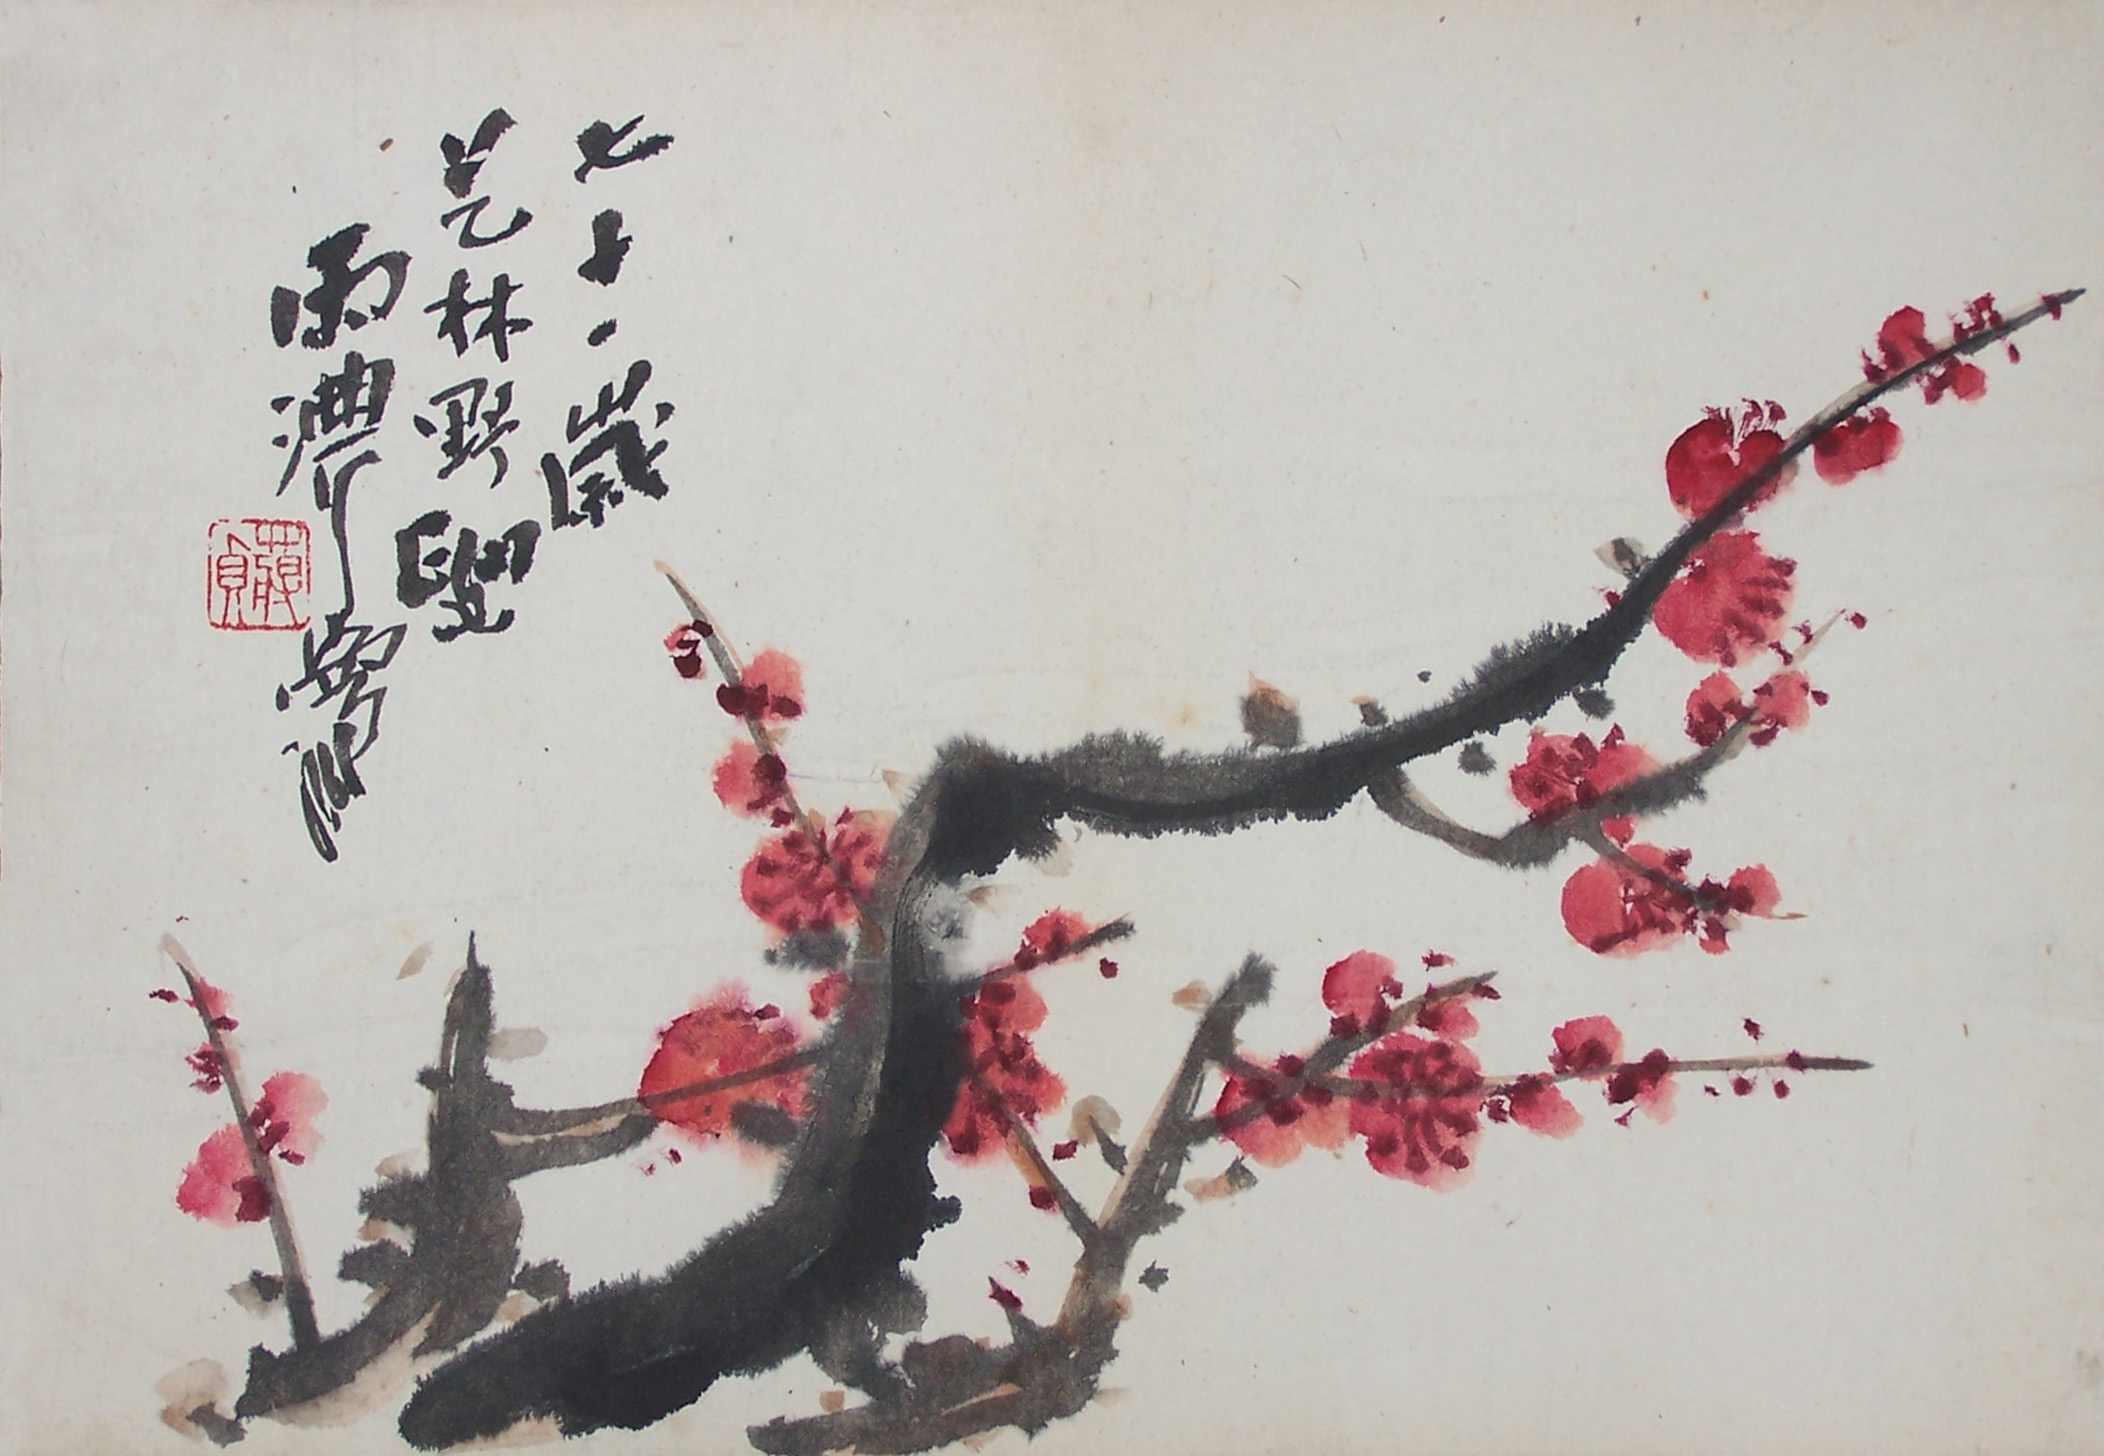 七十一歲
艺林野竪
雨濃寫